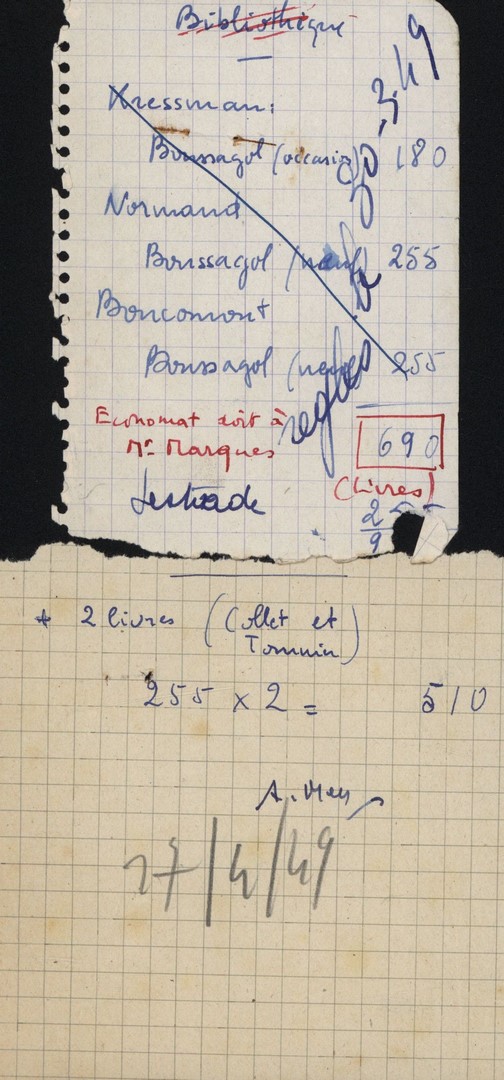 Bibliothèque
Kressman:
Boussagol (occasion) 180
Normand
Boussagol (neuf) 255
Boncomont
Boussagol (neuf) 255
réglé le 30.3.49
Economat doit à 690
Mr Marques
(Livres)
Lestrade
2
9
+ 2 livres (Collet et
Tomnin)
255 x 2 = 510
27/4/49